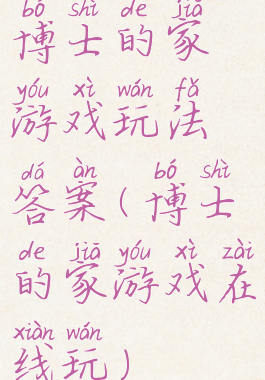 bó shì de jiā
博士的家
yóu xì wán fǎ
游戏玩法
dá àn bó shì
答案(博士
de jiā yóu xì zài
的家游戏在
xiàn wán
线玩)